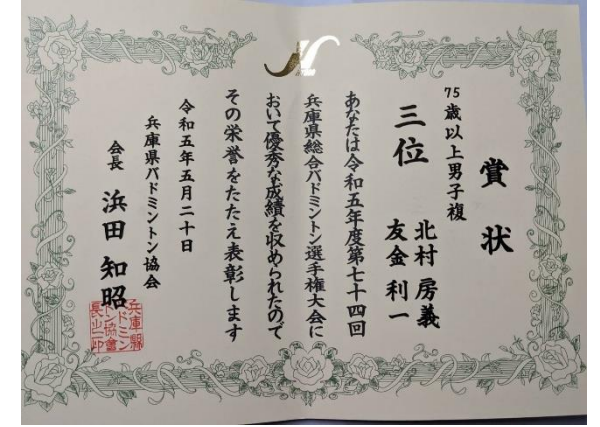 賞状
75歳以上男子複
三位 北村 房義
友金 利一
あなたは令和五年度第七十四回
兵庫県総合バドミントン選手権大会に
おいて優秀な成績を収められたので
その栄誉をたたえ表彰します
令和五年五月二十日
兵庫県バドミントン協会
会長 浜田 知昭
兵庫縣
バドミン
トン協會
長之印